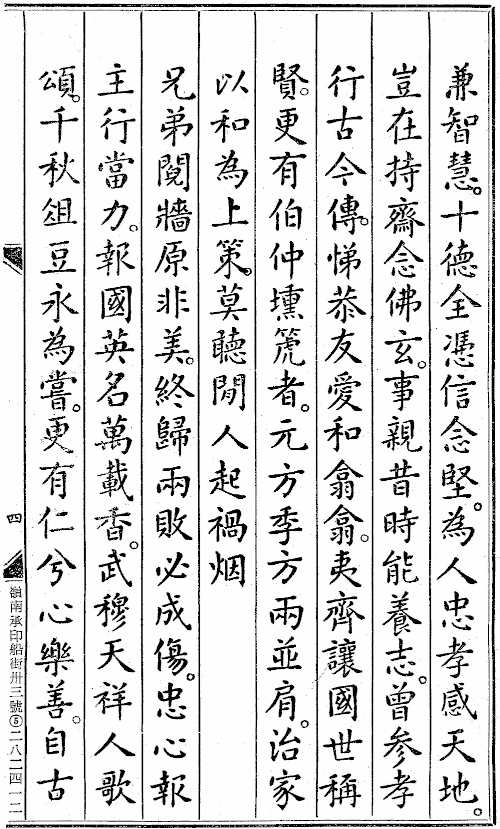 兼智慧。十德全憑信念堅。為人忠孝感天地。
豈在持齋念佛玄。事親昔時能養志。曾參孝
行古今傳。悌恭友愛和翕翕。夷齊讓國世稱
賢。更有伯仲壎篪者。元方季方兩並肩。治家
以和為上策。莫聽閒人起禍烟
兄弟鬩牆原非美。終歸兩敗必成傷。忠心報
主行當力。報國英名萬載香。武穆天祥人歌
頌。千秋俎豆永為嘗。更有仁兮心樂善。自古
四
嶺南承印船街卅三號⑤二八二四一二